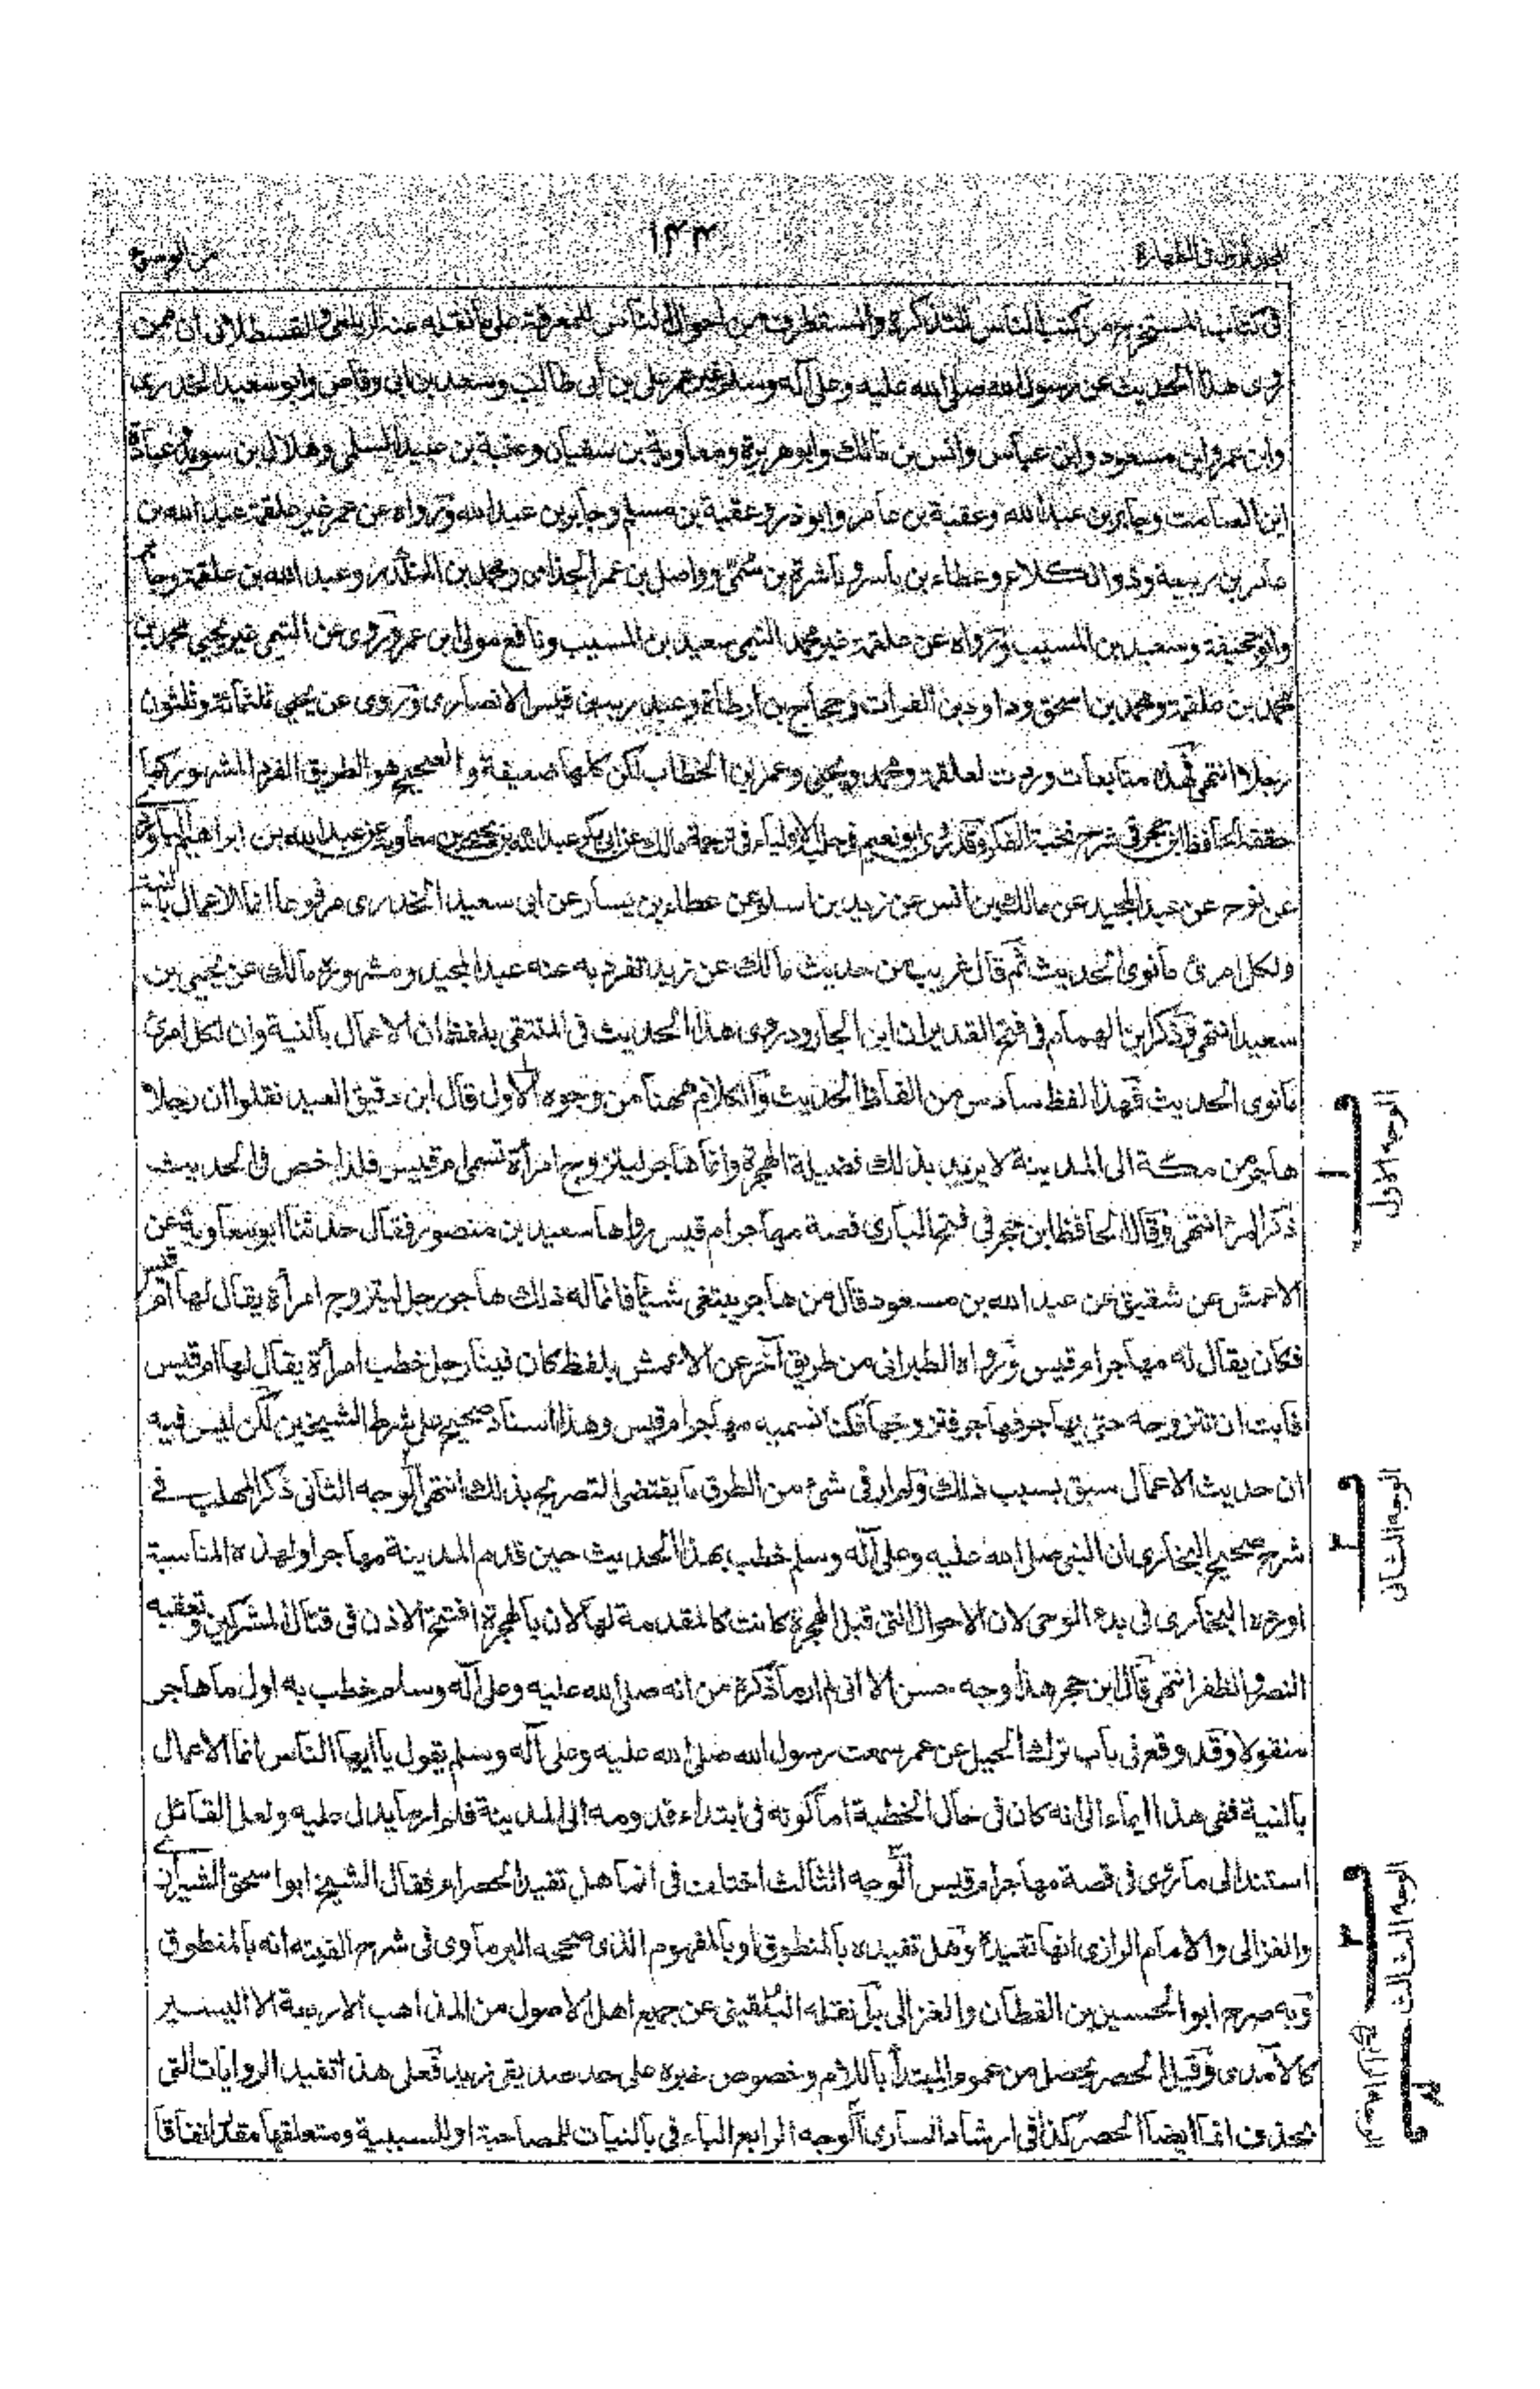 من الوضوء
١٣٣
الجزء الاول فى الطهارة
فى كتاب المستخرج من كتب الناس للتذكرة والمستطرف من احوال الناس للمعرفة على ما نقله عنه الزيلعى والقسطلانى ان ممن
روى هذا الحديث عن رسول الله صلى الله عليه وعلى آله وسلم غير عمر على بن ابى طالب وسعد بن ابى وقاص وابو سعيد الخدرى
وابن عمر وابن مسعود وابن عباس وانس بن مالك وابو هريرة ومعاوية بن سفيان وعتبة بن عبيد السلمى وهلال بن سويد وعبادة
ابن الصامت وجابر بن عبد الله وعقبة بن عامر وابو ذر وعقبة بن مسلم وجابر بن عبد الله ورواه عن عمر غير علقمة عبد الله بن
عامر بن ربيعة وذو الكلاع وعطاء بن ياسر وناشرة بن سمى وواصل بن عمر الجذامى ومحمد بن المنكدر وعبد الله بن علقمة وحاتم
وابو جحيفة وسعيد بن المسيب ورواه عن علقمة غير محمد التيمى سعيد بن المسيب ونافع مولى ابن عمر وروى عن التيمى غير يحيى محمد بن
محمد بن علقمة ومحمد بن اسحق وداود بن الفرات وحجاج بن ارطاة وعبد ربه بن قيس الانصارى وروى عن يحيى ثلثمائة وثلثون
رجلا انتهى فهذه متابعات وردت لعلقمة ومحمد ويحيى وعمر بن الخطاب لكن كلها ضعيفة والصحيح هو الطريق الفرد المشهور كما
حققه الحافظ ابن حجر فى شرح نخبة الفكر وقد روى ابو نعيم فى حلية الاولياء فى ترجمة مالك عن ابى بكر عبد الله بن يحيى بن معاوية عن عبد الله بن ابراهيم
عن نوح عن عبد المجيد عن مالك بن انس عن زيد بن اسلم عن عطاء بن يسار عن ابى سعيد الخدرى مرفوعا انما الاعمال بالنية
ولكل امرئ ما نوى الحديث ثم قال غريب من حديث مالك عن زيد تفرد به عنه عبد المجيد ومشهوره مالك عن يحيى بن
سعيد انتهى وذكر ابن الهمام فى فتح القدير ان ابن الجارود روى هذا الحديث فى المنتقى بلفظ ان الاعمال بالنية وان لكل امرئ
ما نوى الحديث فهذا لفظ سادس من الفاظ الحديث والكلام ههنا من وجوه الاول قال ابن دقيق العيد نقلوا ان رجلا
هاجر من مكة الى المدينة لا يريد بذلك فضيلة الهجرة وانما هاجر ليتزوج امرأة تسمى ام قيس فلذا خص فى الحديث
ذكر المرأة انتهى وقال الحافظ ابن حجر فى فتح البارى قصة مهاجر ام قيس رواها سعيد بن منصور فقال حدثنا ابو معاوية عن
الاعمش عن شقيق عن عبد الله بن مسعود قال من هاجر يبتغى شيئا فانما له ذلك هاجر رجل ليتزوج امرأة يقال لها ام قيس
فكان يقال له مهاجر ام قيس ورواه الطبرانى من طريق آخر عن الاعمش بلفظ كان فينا رجل خطب امرأة يقال لها ام قيس
فابت ان تتزوجه حتى يهاجر فهاجر فتزوجها فكنا نسميه مهاجر ام قيس وهذا اسناد صحيح على شرط الشيخين لكن ليس فيه
ان حديث الاعمال سيق بسبب ذلك ولم ار فى شئ من الطرق ما يقتضى التصريح بذلك انتهى الوجه الثانى ذكر المهلب فى
شرح صحيح البخارى ان النبى صلى الله عليه وعلى آله وسلم خطب بهذا الحديث حين قدم المدينة مهاجرا ولهذه المناسبة
اورده البخارى فى بدء الوحى لان الاحوال التى قبل الهجرة كانت كالمقدمة لها لان بالهجرة افتتح الاذن فى قتال المشركين وتعقبه
النصر والظفر انتهى قال ابن حجر هذا وجه حسن الا انى لم ار ما ذكره من انه صلى الله عليه وعلى آله وسلم خطب به اول ما هاجر
منقولا وقد وقع فى باب ترك الحيل عن عمر سمعت رسول الله صلى الله عليه وعلى آله وسلم يقول يا ايها الناس انما الاعمال
بالنية ففى هذا ايماء الى انه كان فى حال الخطبة اما كونه فى ابتداء قدومه الى المدينة فلم ار ما يدل عليه ولعل القائل
استند الى ما روى فى قصة مهاجر ام قيس الوجه الثالث اختلفت فى انما هل تفيد الحصر ام فقال الشيخ ابو اسحق الشيرازى
والغزالى والامام الرازى انها تفيده وهل تفيده بالمنطوق او بالمفهوم الذى صححه البرماوى فى شرح الفيته انه بالمنطوق
وبه صرح ابو الحسين بن القطان والغزالى بل نقله البلقينى عن جميع اهل الاصول من المذاهب الاربعة الا اليسير
كالآمدى وقيل الحصر يحصل من عموم المبتدأ باللام وخصوص خبره على حد صديقى زيد فعلى هذا تفيد الروايات التى
بحذف انما ايضا الحصر كذا فى ارشاد السارى الوجه الرابع الباء فى بالنيات للمصاحبة او للسببية ومتعلقها مقدر اتفاقا
الوجه الاول
الوجه الثانى
الوجه الثالث
الوجه الرابع